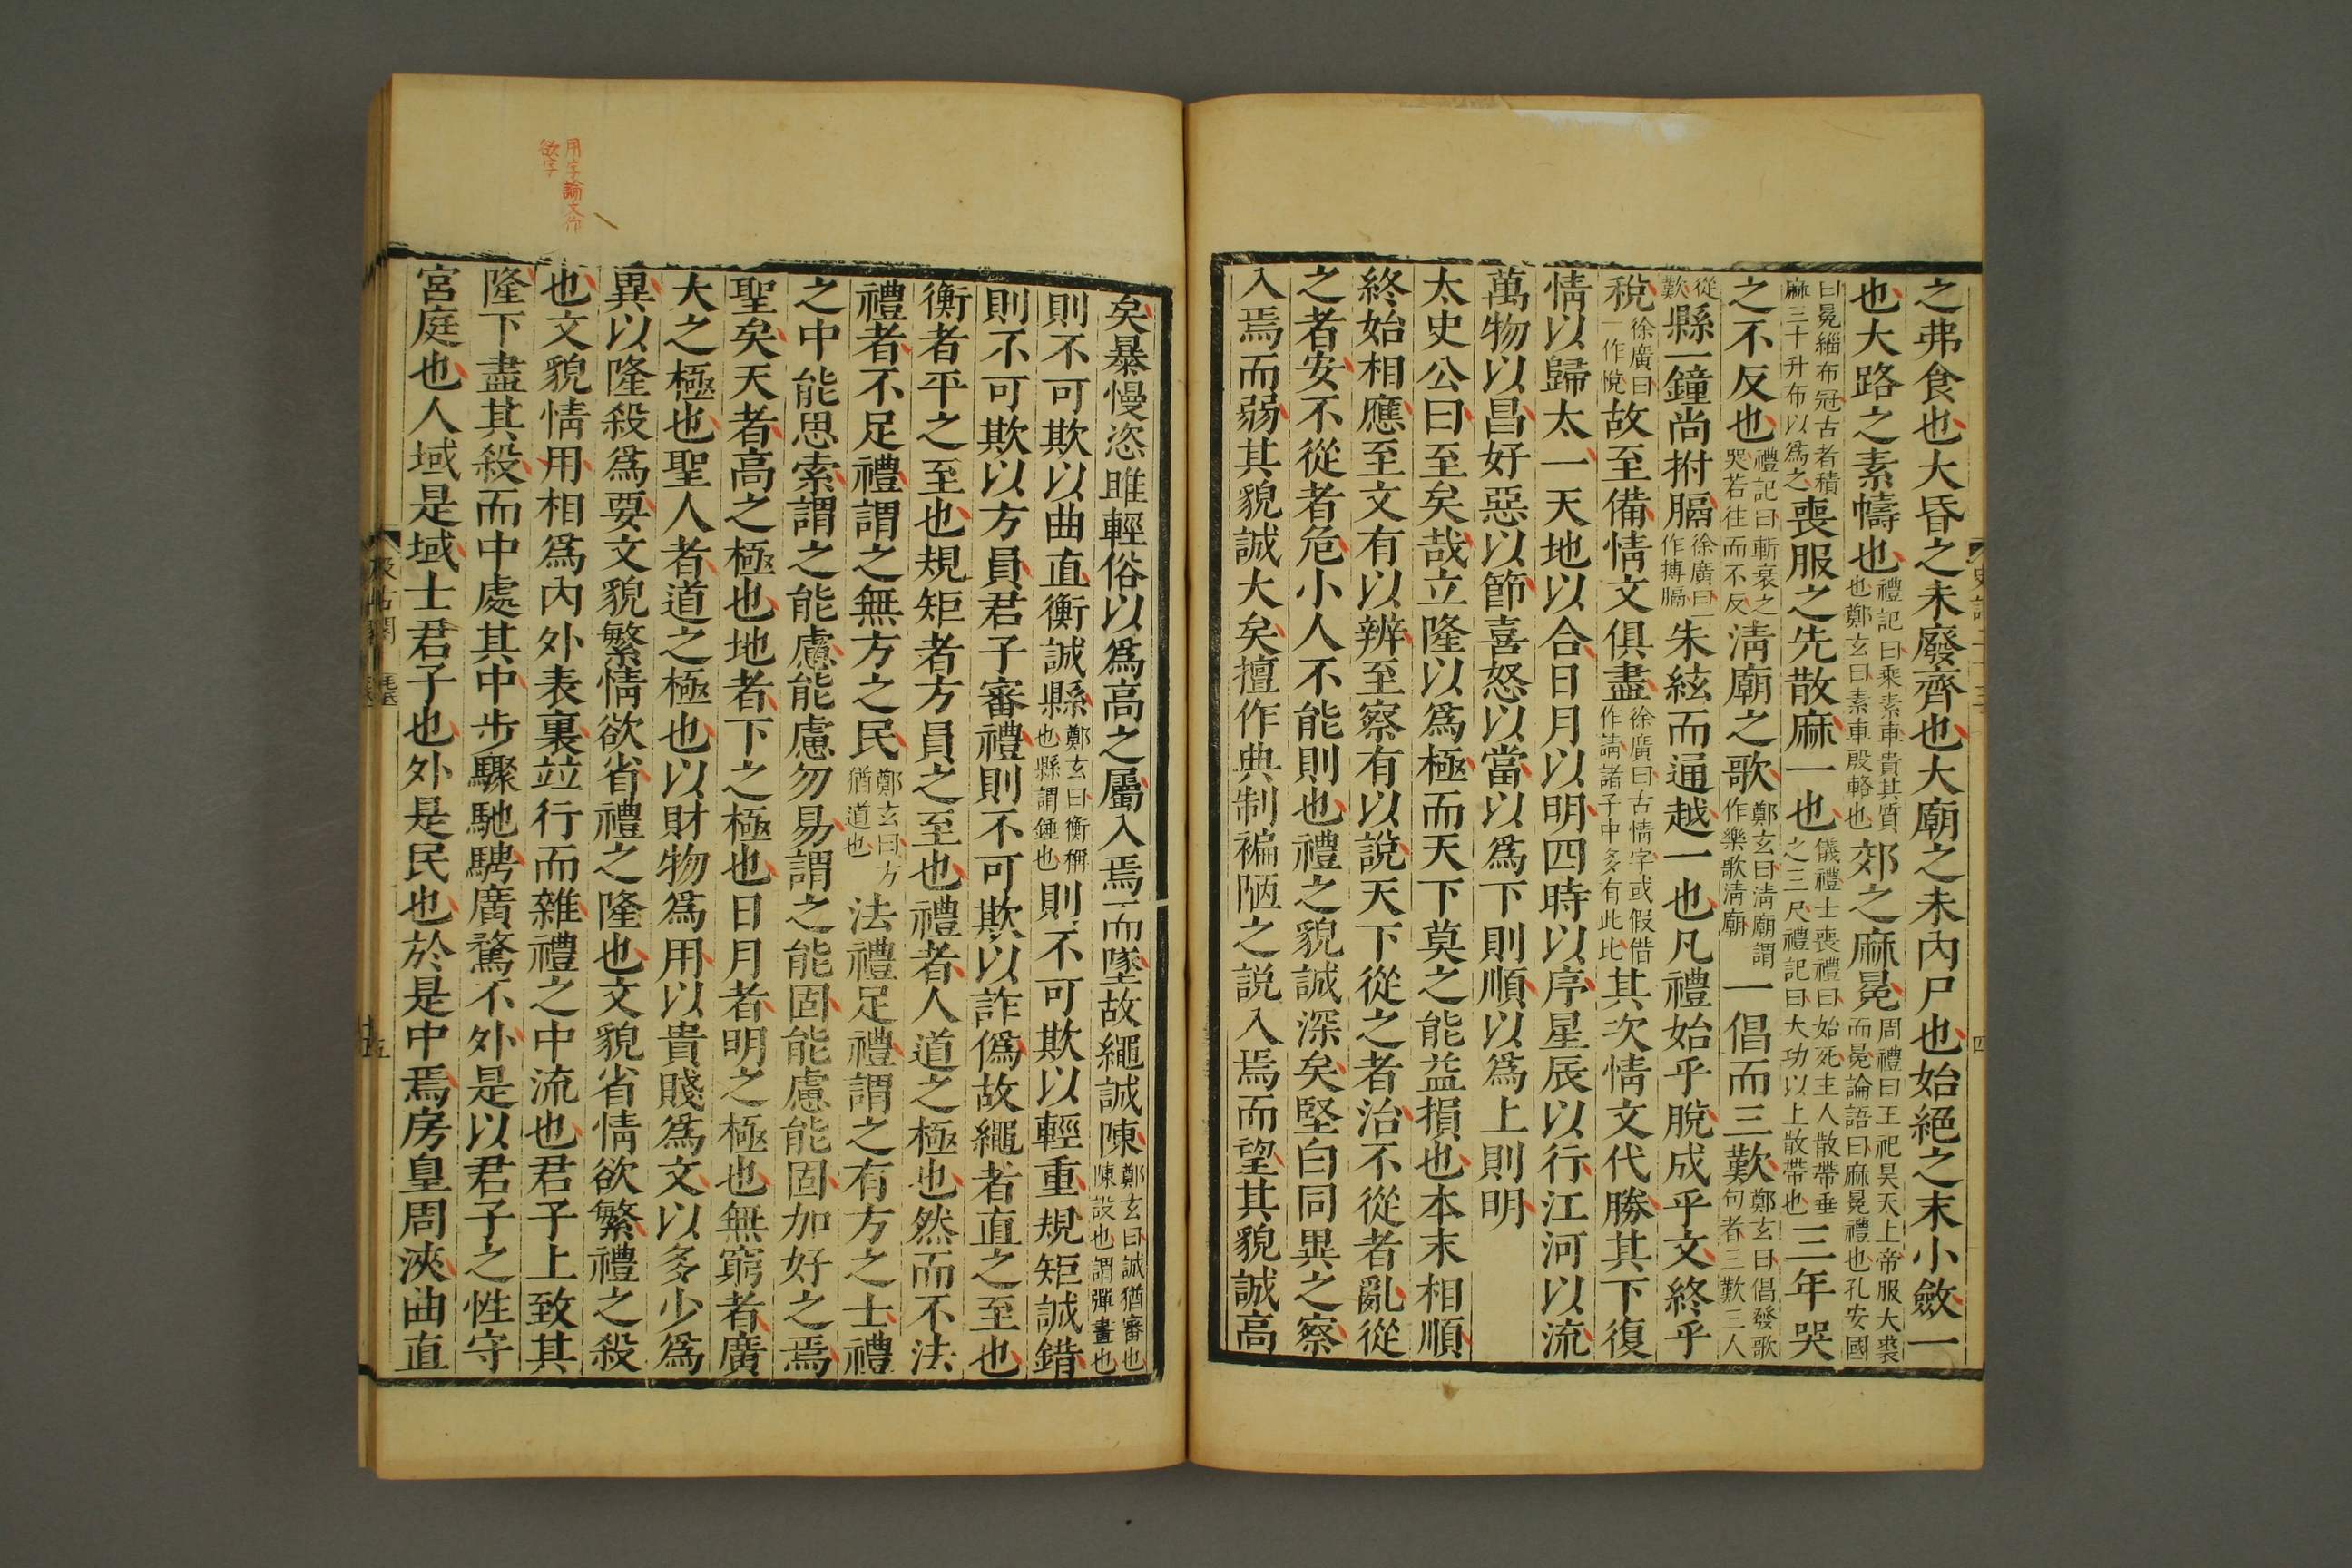 之弗食也大昏之未廢齊也大廟之未內尸也始絕之末小斂一
也大路之素幬也禮記曰乘素車貴其質也鄭玄曰素車殷輅也郊之麻冕周禮曰王祀昊天上帝服大裘而冕論語曰麻冕禮也孔安國
曰冕緇布冠古者積麻三十升布以爲之喪服之先散麻一也儀禮士喪禮曰始死主人散帶垂之三尺禮記曰大功以上散帶也三年哭
之不反也禮記曰斬衰之哭若往而不反清廟之歌鄭玄曰清廟謂作樂歌清廟一倡而三歎鄭玄曰倡發歌句者三歎三人
從歎縣一鐘尚拊膈徐廣曰一作搏膈朱絃而通越一也凡禮始乎脫成乎文終乎
稅徐廣曰一作悅故至備情文俱盡徐廣曰古情字或假借作請諸子中多有此比其次情文代勝其下復
情以歸太一天地以合日月以明四時以序星辰以行江河以流
萬物以昌好惡以節喜怒以當以爲下則順以爲上則明
太史公曰至矣哉立隆以爲極而天下莫之能益損也本末相順
終始相應至文有以辨至察有以說天下從之者治不從者亂從
之者安不從者危小人不能則也禮之貌誠深矣堅白同異之察
入焉而弱其貌誠大矣擅作典制褊陋之說入焉而望其貌誠高
矣暴慢恣睢輕俗以爲高之屬入焉而墜故繩誠陳鄭玄曰誠猶審也陳設也謂彈畫也
則不可欺以曲直衡誠縣鄭玄曰衡稱也縣謂錘也則不可欺以輕重規矩誠錯
則不可欺以方員君子審禮則不可欺以詐僞故繩者直之至也
衡者平之至也規矩者方員之至也禮者人道之極也然而不法
禮者不足禮謂之無方之民鄭玄曰方猶道也法禮足禮謂之有方之士禮
之中能思索謂之能慮能慮勿易謂之能固能慮能固加好之焉
聖矣天者高之極也地者下之極也日月者明之極也無窮者廣
大之極也聖人者道之極也以財物爲用以貴賤爲文以多少爲
異以隆殺爲要文貌繁情欲省禮之隆也文貌省情欲繁禮之殺
也文貌情用相爲內外表裏竝行而雜禮之中流也君子上致其
隆下盡其殺而中處其中步驟馳騁廣騖不外是以君子之性守
宮庭也人域是域士君子也外是民也於是中焉房皇周浹曲直
用字論文作
欲字